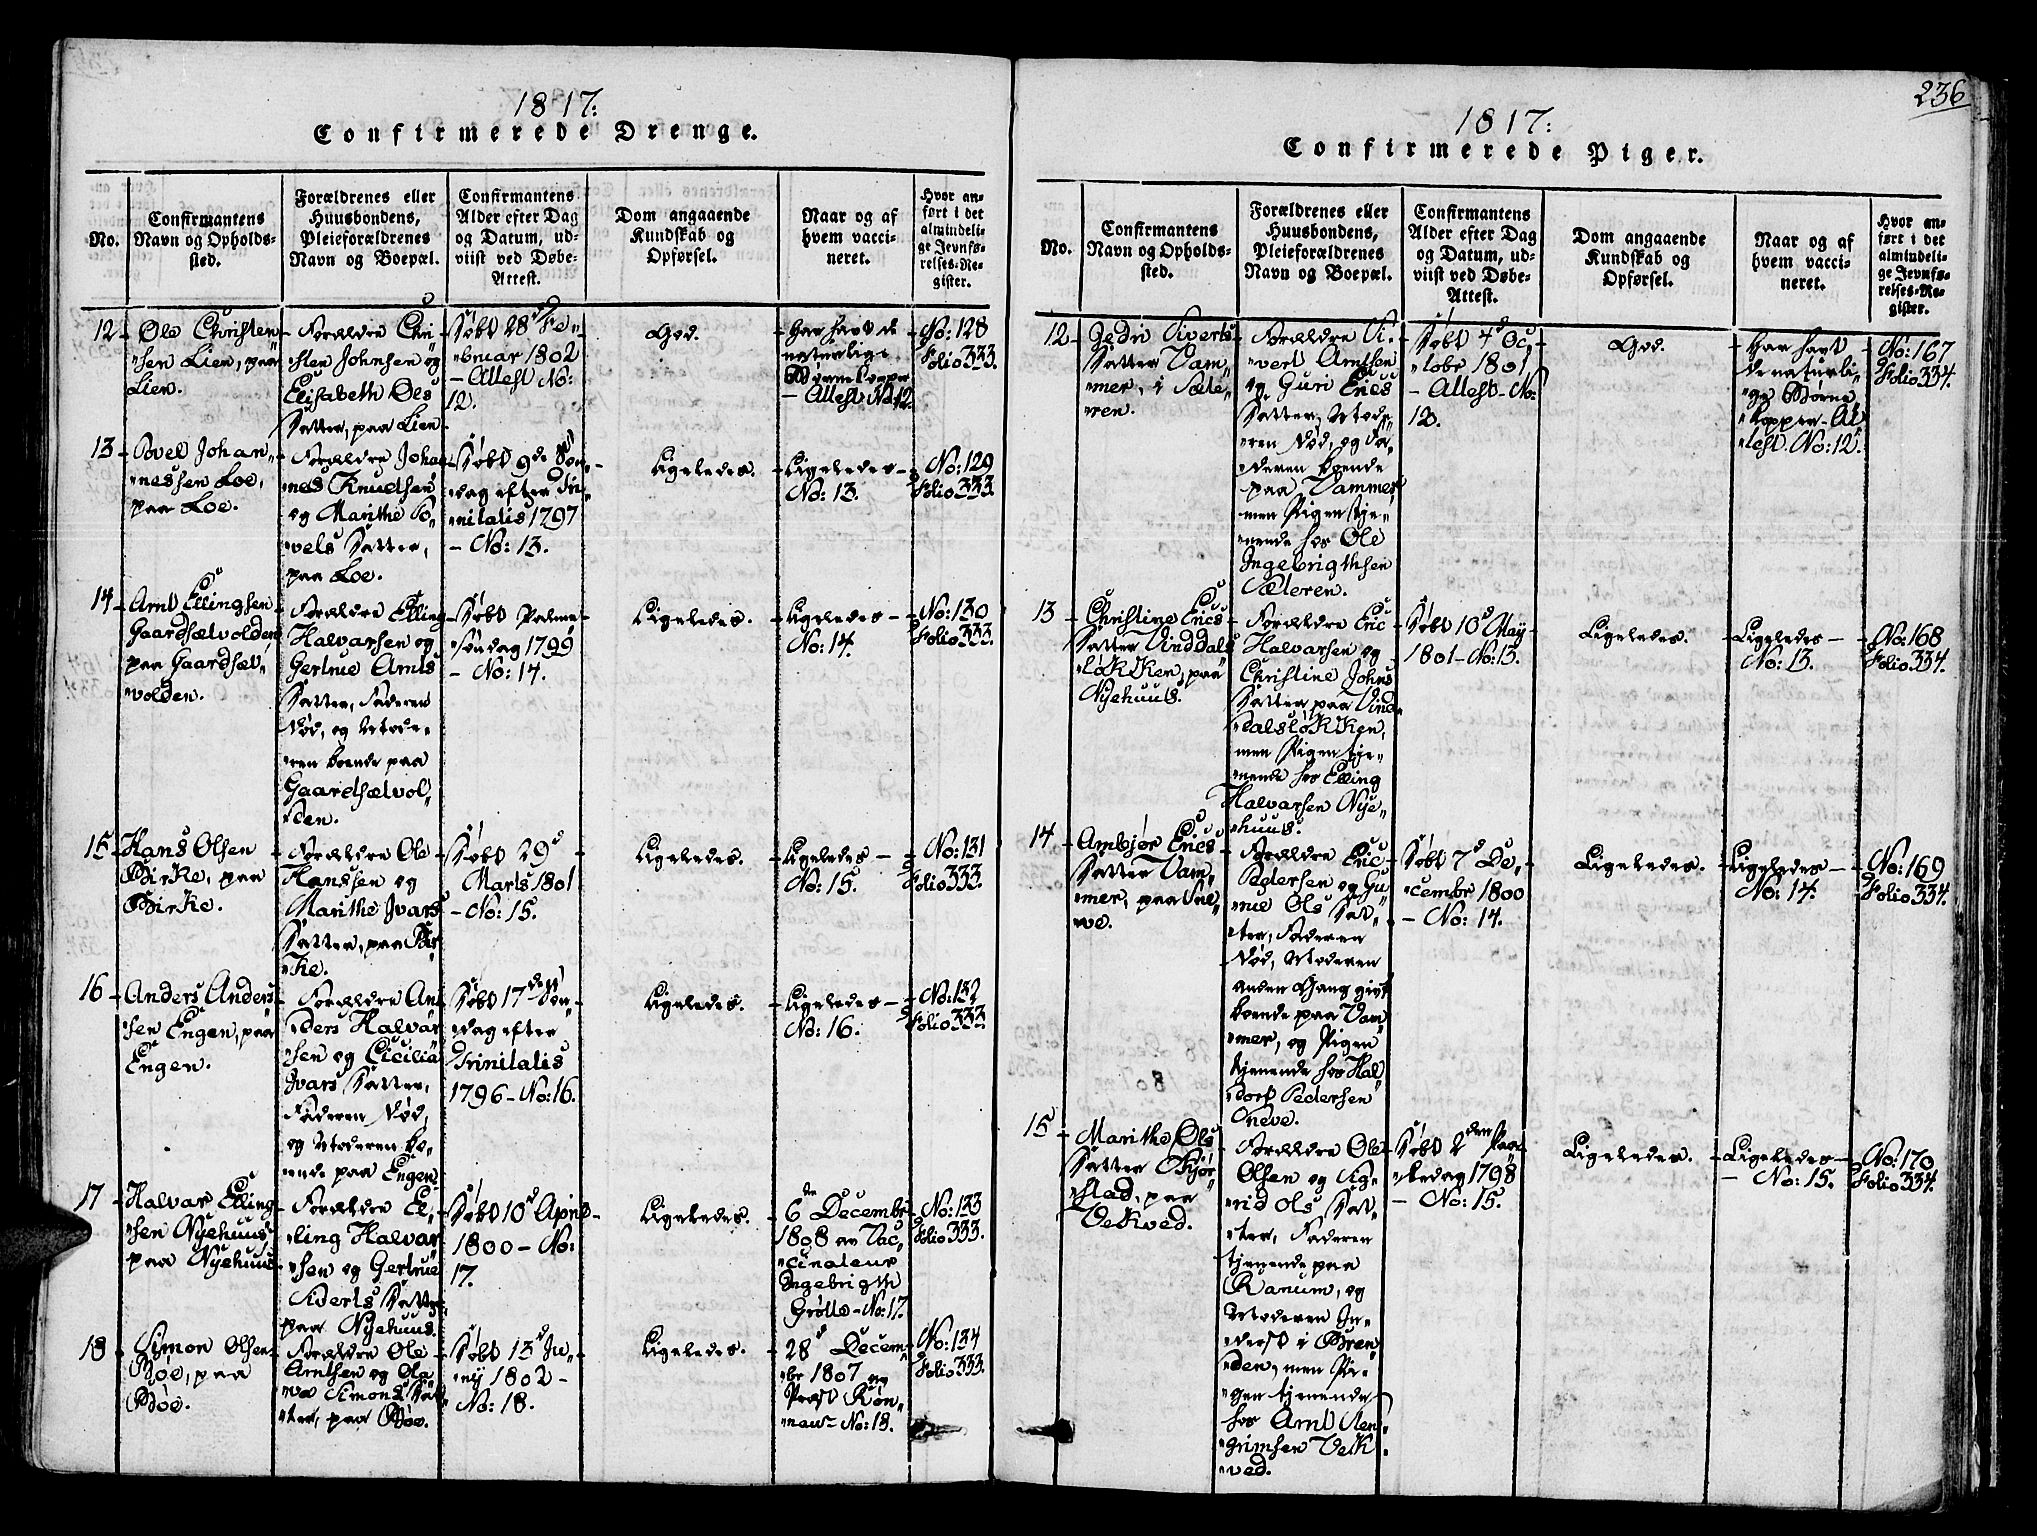 236
1817:
Confirmerede Drenge.
No.
Confirmantens
Navn og Opholds-
sted.
Forældrenes eller
Huusbondens,
Pleieforældrenes
Navn og Boepæl.
Confirmantens
Alder efter Dag
og Datum, ud-
viist ved Døbe-
Attest.
Dom angaaende
Kundskab og
Opførsel.
Naar og af
hvem vacci-
neret.
Hvor an-
ført i det
almindeli-
ge Jevnfø-
relses-Re-
gister.
12
Ole Christen
sen Lien, paa
Lien.
Forældre Chri
sten Johnsen og
Elisabeth Ols
Datter, paa Lien
Døbt 28d Fe-
bruar 1802
- Attest No:
12.
God.
Har havt de
naturlige
Børnekopper
- Attest No 12.
No: 128
Folio 333.
13
Povel Johan
nessen Loe,
paa Loe.
Forældre Johan
nes Knudsen
og Marithe Po
vels Datter,
paa Loe.
Døbt 9de Søn-
dag efter Tri
nitatis 1797
- No: 13.
Ligeledes.
Ligeledes -
No: 13.
No: 129
Folio 333.
14
Arnt Ellingsen
Gaardsætvolden
paa Gaardsæt
volden.
Forældre Elling
Halvarsen og
Gertrue Arnts
Datter, Faderen
Død, og Mode-
ren boende paa
Gaardsætvol
den.
Døbt Palme
Søndag 1799
- No: 14.
Ligeledes.
Ligeledes -
No: 14.
No: 130
Folio 333.
15
Hans Olsen
Birke, paa
Birke.
Forældre Ole
Hanssen og
Marithe Ivars
Datter, paa Bir
ke.
Døbt 29d
Marts 1801
- No: 15.
Ligeledes.
Ligeledes -
No: 15.
No: 131
Folio 333.
16
Anders Anders
sen Engen, paa
Engen.
Forældre An
ders Halvar
sen og Cicilia
Ivars Datter,
Faderen Død,
og Moderen bo-
ende paa Engen
Døbt 17de Søn
dag efter
Trinitatis
1796 - No: 16.
Ligeledes.
Ligeledes -
No: 16.
No: 132
Folio 333.
17
Halvar Elling
sen Nyehuus,
paa Nyehuus
Forældre El
ling Halvar
sen og Gertrue
Siverts Datter
paa Nyehuus.
Døbt 10d April
1800 - No:
17.
Ligeledes.
6de Decembr
1808 av Vac
cinateur
Ingebrigth
Grøtte - No: 17.
No: 133
Folio 333.
18
Simon Olsen
Bøe, paa
Bøe.
Forældre Ole
Arntsen og Ole
va Simons Dat
ter, paa Bøe.
Døbt 13d Ju
ny 1802 -
No: 18.
Ligeledes.
28d Decem
br 1807 av
Prost Røn
nau - No: 18.
No: 134
Folio 333.
1817:
Confirmerede Piger.
No.
Confirmantens
Navn og Opholds-
sted.
Forældrenes eller
Huusbondens,
Pleieforældrenes
Navn og Boepæl.
Confirmantens
Alder efter Dag
og Datum, ud-
viist ved Døbe-
Attest.
Dom angaaende
Kundskab og
Opførsel.
Naar og af
hvem vacci-
neret.
Hvor an-
ført i det
almindeli-
ge Jevnfø-
relses-Re-
gister.
12
Siverts
Datter Vam
mer, i Sæte
ren.
Forældre Si
vert Arntsen
og Guri Erics
Datter, Mode
ren Død, og Fa
deren boende
paa Vammer
men Pigen tje
nende hos Ole
Ingebrigthsen
Sæteren.
Døbt 4d Oc
tobr 1801
- Attest No:
12.
God.
Har havt
de naturli
ge Børne
kopper - At
test No: 12.
No: 167
Folio 334.
13
Christine Erics
Datter Vinddals
løkken, paa
Nyehuus.
Forældre Eric
Halvarsen og
Christine Johns
Datter, paa Vind
dalsløkken,
men Pigen tje
nende hos Elling
Halvarsen Nye
huus.
Døbt 10d May
1801 - No: 13.
Ligeledes.
Ligeledes -
No: 13.
No: 168
Folio 334.
14
Ambjør Erics
Datter Vam
mer, paa Sne
ve.
Forældre Eric
Pedersen og Gu
rue Ols Dat
ter, Faderen
Død, Moderen
anden Gang givt
boende paa Vam
mer, og Pigen
tjenende hos Hal
dor Pedersen
Sneve.
Døbt 7d De
cembr 1800
- No: 14.
Ligeledes.
Ligeledes -
No: 14.
No: 169
Folio 334.
15
Marithe Ols
Datter Skjør
stad, paa
Vekved.
Forældre Ole
Olsen og Sig
rid Ols Dat
ter, Faderen
tjenende paa
Ranum, og
Moderen In
derst i Bren
den, men Pi
gen tjenende
hos Arnt Sten
grimsen Vek
ved.
Døbt 2den Paa
skedag 1798
- No: 15.
Ligeledes.
Ligeledes -
- No: 15.
No: 170
Folio 334.